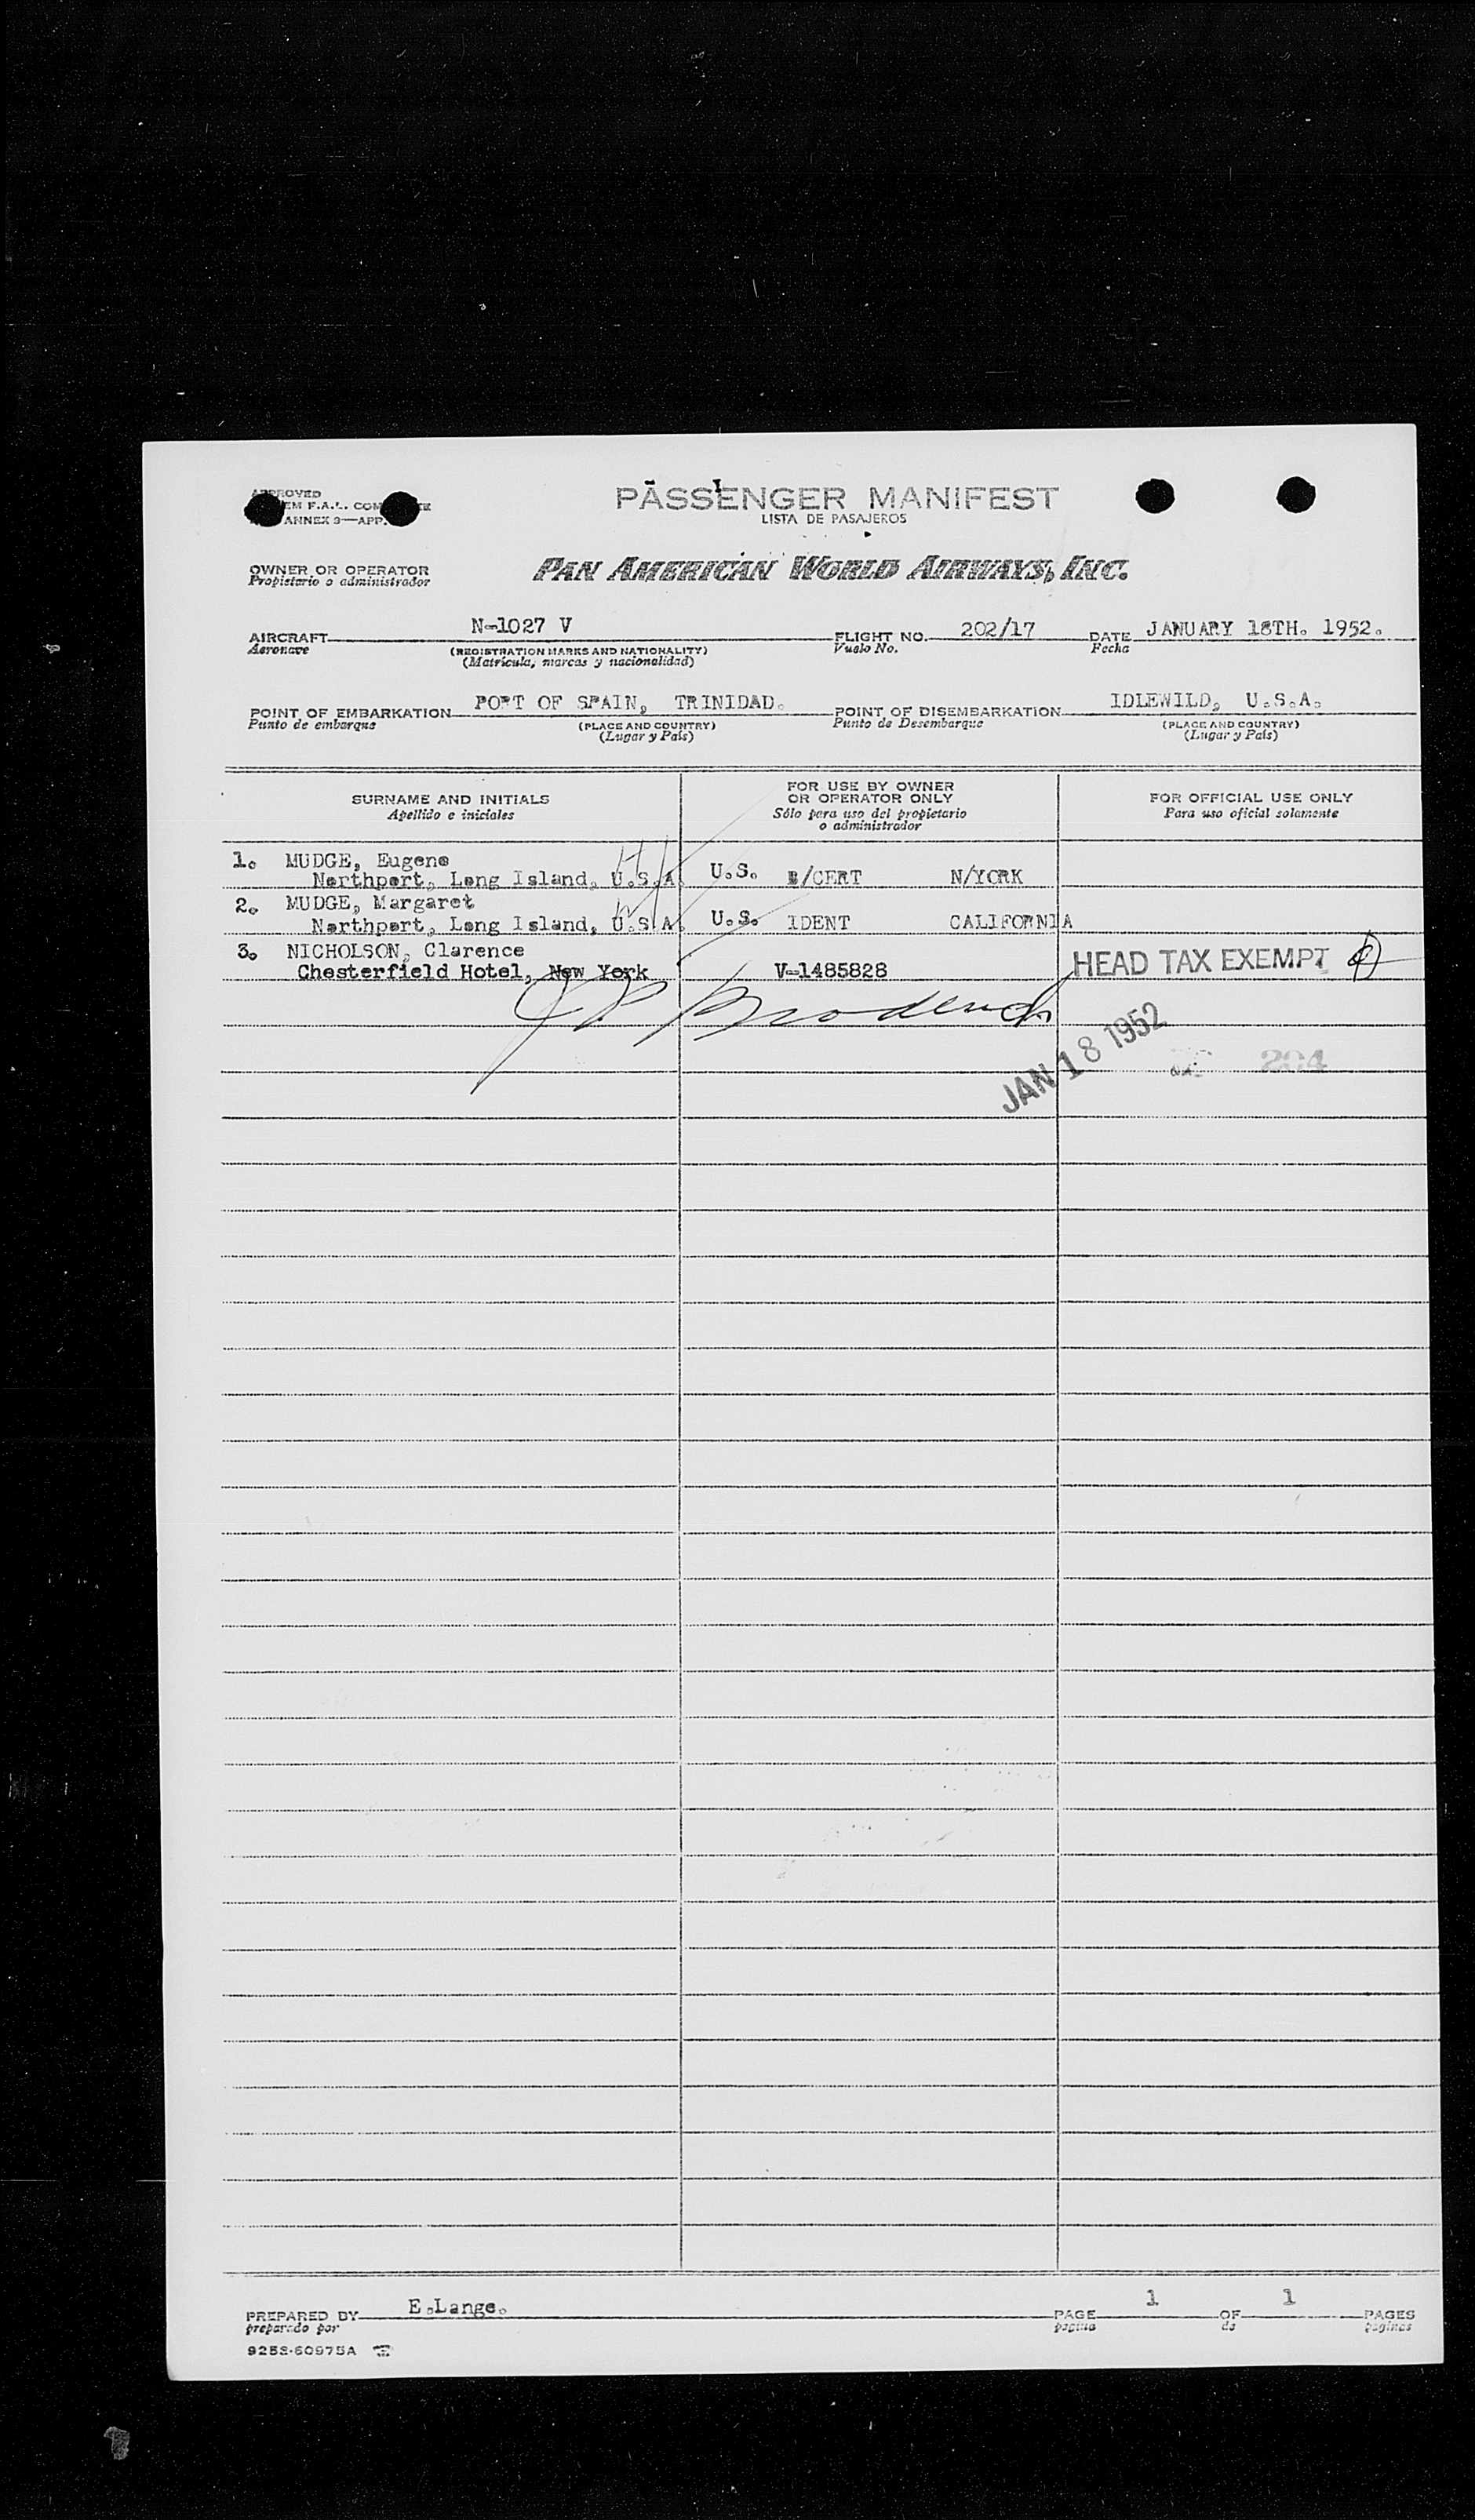 APPROVED
PASSENGER MANIFEST
EM F.A.L. COM
ANNEX 9—APP.
LISTA DE PASAJEROS
OWNER OR OPERATOR
Propietario o administrador
PAN AMERICAN WORLD AIRWAYS, INC.
AIRCRAFT N-1027 V FLIGHT NO. 202/17 DATE JANUARY 18TH. 1952.
Aeronave (REGISTRATION MARKS AND NATIONALITY) Vuelo No. Fecha
(Matrícula, marcas y nacionalidad)
POINT OF EMBARKATION PORT OF SPAIN, TRINIDAD. POINT OF DISEMBARKATION IDLEWILD, U.S.A.
Punto de embarque (PLACE AND COUNTRY) Punto de Desembarque (PLACE AND COUNTRY)
(Lugar y País) (Lugar y País)
SURNAME AND INITIALS
Apellido e iniciales
FOR USE BY OWNER
OR OPERATOR ONLY
Sólo para uso del propietario
o administrador
FOR OFFICIAL USE ONLY
Para uso oficial solamente
1. MUDGE, Eugene
Northport, Long Island, U.S.A. U.S. B/CERT N/YORK
2. MUDGE, Margaret
Northport, Long Island, U.S.A. U.S. IDENT CALIFORNIA
3. NICHOLSON, Clarence
Chesterfield Hotel, New York V-1485828 HEAD TAX EXEMPT
JAN 18 1952
204
PREPARED BY E.Lange. PAGE 1 OF 1 PAGES
preparado por página de páginas
9253-60975A